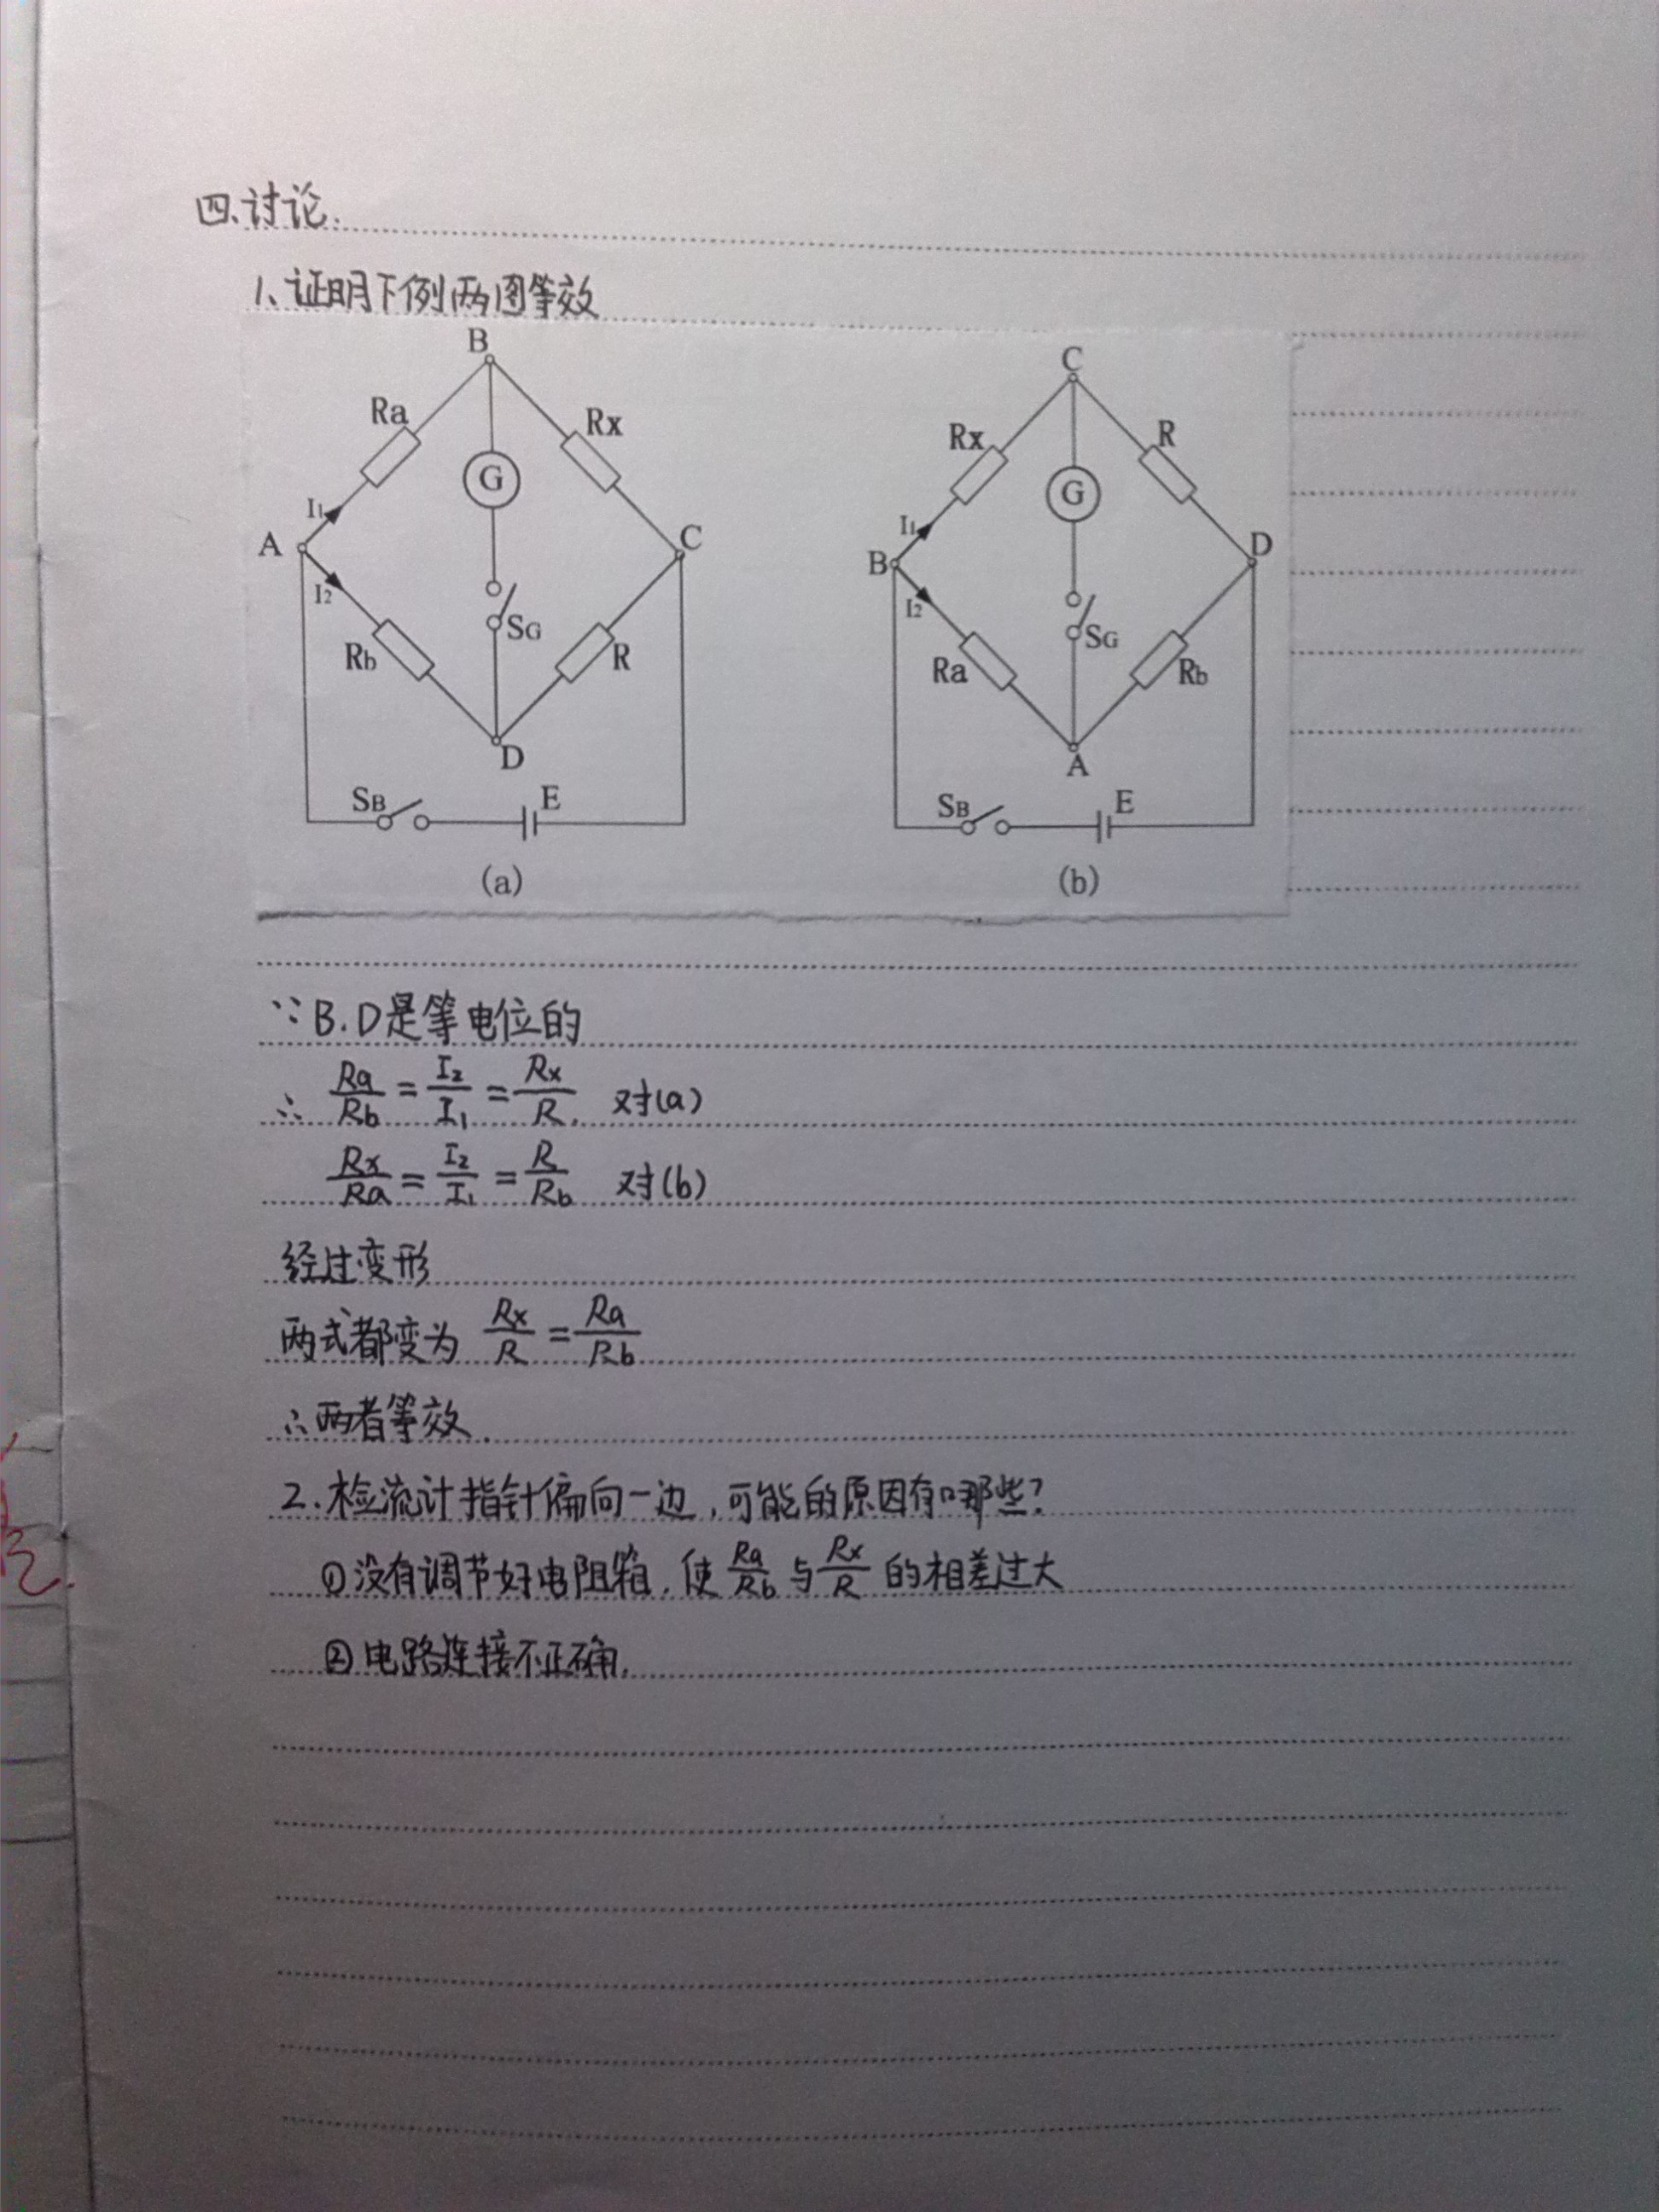 四、讨论.
1、证明下例两图等效
B
C
Ra
Rx
Rx
R
G
G
I1
I1
A
C
B
D
I2
I2
SG
SG
Rb
R
Ra
Rb
D
A
SB
E
SB
E
(a)
(b)
∵B.D是等电位的
∴ Ra/Rb = I2/I1 = Rx/R. 对(a)
Rx/Ra = I2/I1 = R/Rb 对(b)
经过变形
两式都变为 Rx/R = Ra/Rb
∴两者等效.
2.检流计指针偏向一边,可能的原因有哪些?
①没有调节好电阻箱,使 Ra/Rb 与 Rx/R 的相差过大
②电路连接不正确.